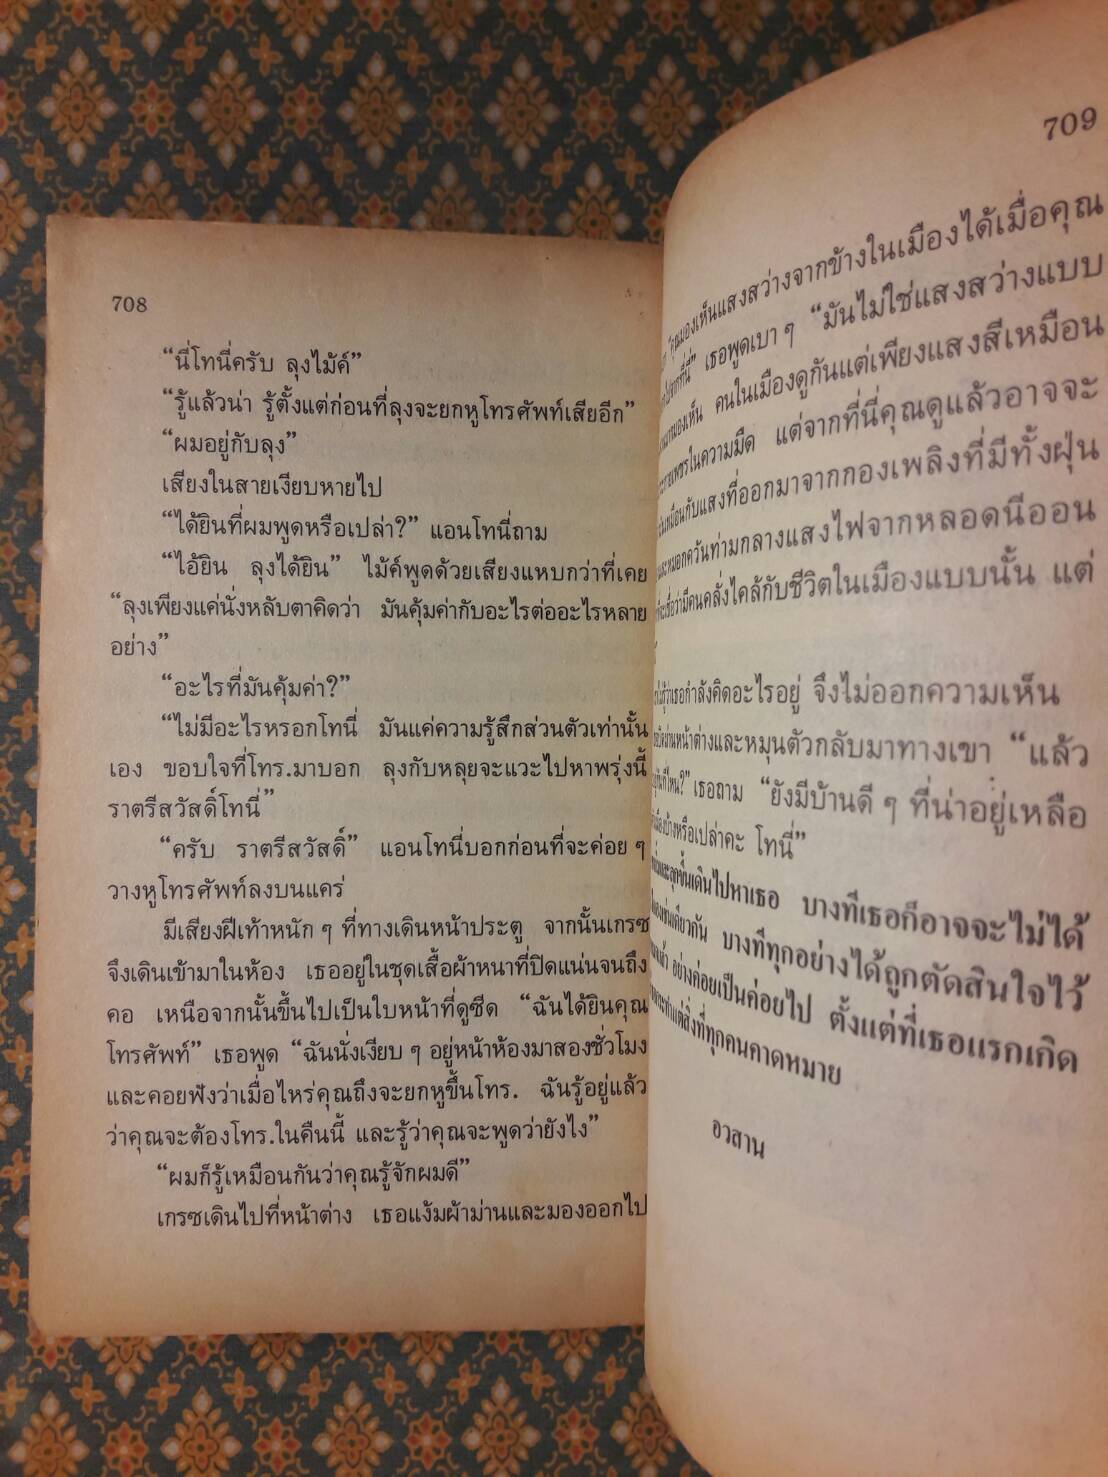 708
“นี่โทนี่ครับ ลุงไม้ค์”
“รู้แล้วน่า รู้ตั้งแต่ก่อนที่ลุงจะยกหูโทรศัพท์เสียอีก”
“ผมอยู่กับลุง”
เสียงในสายเงียบหายไป
“ได้ยินที่ผมพูดหรือเปล่า?” แอนโทนี่ถาม
“ไอ้ยิน ลุงได้ยิน” ไม้ค์พูดด้วยเสียงแหบกว่าที่เคย
“ลุงเพียงแค่นั่งหลับตาคิดว่า มันคุ้มค่ากับอะไรต่ออะไรหลาย
อย่าง”
“อะไรที่มันคุ้มค่า?”
“ไม่มีอะไรหรอกโทนี่ มันแค่ความรู้สึกส่วนตัวเท่านั้น
เอง ขอบใจที่โทร.มาบอก ลุงกับหลุยจะแวะไปหาพรุ่งนี้
ราตรีสวัสดิ์โทนี่”
“ครับ ราตรีสวัสดิ์” แอนโทนี่บอกก่อนที่จะค่อย ๆ
วางหูโทรศัพท์ลงบนแคร่
มีเสียงฝีเท้าหนัก ๆ ที่ทางเดินหน้าประตู จากนั้นเกรซ
จึงเดินเข้ามาในห้อง เธออยู่ในชุดเสื้อผ้าหนาที่ปิดแน่นจนถึง
คอ เหนือจากนั้นขึ้นไปเป็นใบหน้าที่ดูซีด “ฉันได้ยินคุณ
โทรศัพท์” เธอพูด “ฉันนั่งเงียบ ๆ อยู่หน้าห้องมาสองชั่วโมง
และคอยฟังว่าเมื่อไหร่คุณถึงจะยกหูขึ้นโทร. ฉันรู้อยู่แล้ว
ว่าคุณจะต้องโทร.ในคืนนี้ และรู้ว่าคุณจะพูดว่ายังไง”
“ผมก็รู้เหมือนกันว่าคุณรู้จักผมดี”
เกรซเดินไปที่หน้าต่าง เธอแง้มผ้าม่านและมองออกไป
709
มองเห็นแสงสว่างจากข้างในเมืองได้เมื่อคุณ
เธอพูดเบา ๆ “มันไม่ใช่แสงสว่างแบบ
มองเห็น คนในเมืองดูกันแต่เพียงแสงสีเหมือน
เพชรในความมืด แต่จากที่นี่คุณดูแล้วอาจจะ
เหมือนกับแสงที่ออกมาจากกองเพลิงที่มีทั้งฝุ่น
หมอกควันท่ามกลางแสงไฟจากหลอดนีออน
เชื่อว่ามีคนคลั่งไคล้กับชีวิตในเมืองแบบนั้น แต่
รู้ว่าเธอกำลังคิดอะไรอยู่ จึงไม่ออกความเห็น
ม่านหน้าต่างและหมุนตัวกลับมาทางเขา “แล้ว
เธอถาม “ยังมีบ้านดี ๆ ที่น่าอยู่เหลือ
บ้างหรือเปล่าคะ โทนี่”
และลุกขึ้นเดินไปหาเธอ บางทีเธอก็อาจจะไม่ได้
เช่นเดียวกัน บางทีทุกอย่างได้ถูกตัดสินใจไว้
แล้ว อย่างค่อยเป็นค่อยไป ตั้งแต่ที่เธอแรกเกิด
แต่สิ่งที่ทุกคนคาดหมาย
อวสาน